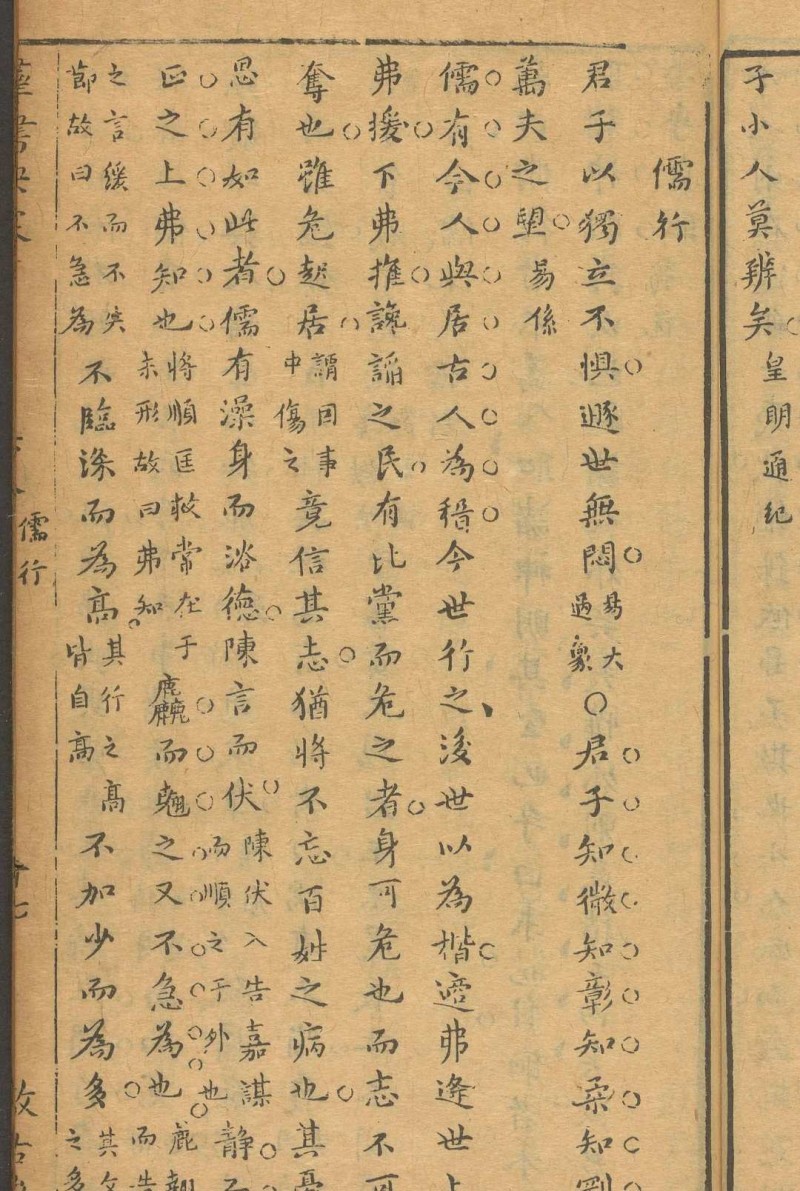 子小人莫辨矣皇明通紀
儒行
君子以獨立不懼遯世無悶易大過象○君子知微知彰知柔知剛
萬夫之望易係
儒有今人與居古人為稽今世行之後世以為楷適弗逢世上
弗援下弗推讒謟之民有比黨而危之者身可危也而志不可
奪也雖危起居謂因事中傷之竟信其志猶將不忘百姓之病也其憂
思有如此者儒有澡身而浴德陳言而伏陳伏入告嘉謀而順之于外也靜而
正之上弗知也將順匡救常在于未形故曰弗知麤而翹之又不急為也麤翹
之言緩而不突節故曰不急為不臨深而為高其行之高皆自高不加少而為多其文之多
儒行